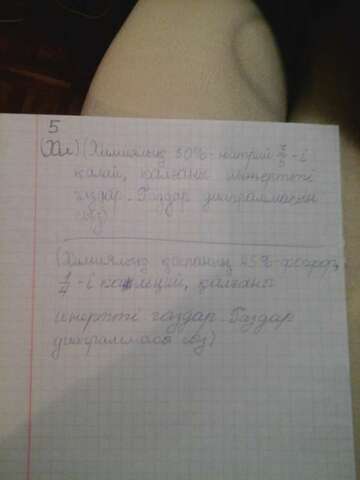 5
(Химиялық 30%-натрий -і
калай, қалғаны инертті
газдар. Газдар диаграммасын
сыз)
(Химиялық қоспаның 45%-фосфор,
1/4-і кальций, қалғаны
инертті газдар. Газдар
диаграммасы сыз)